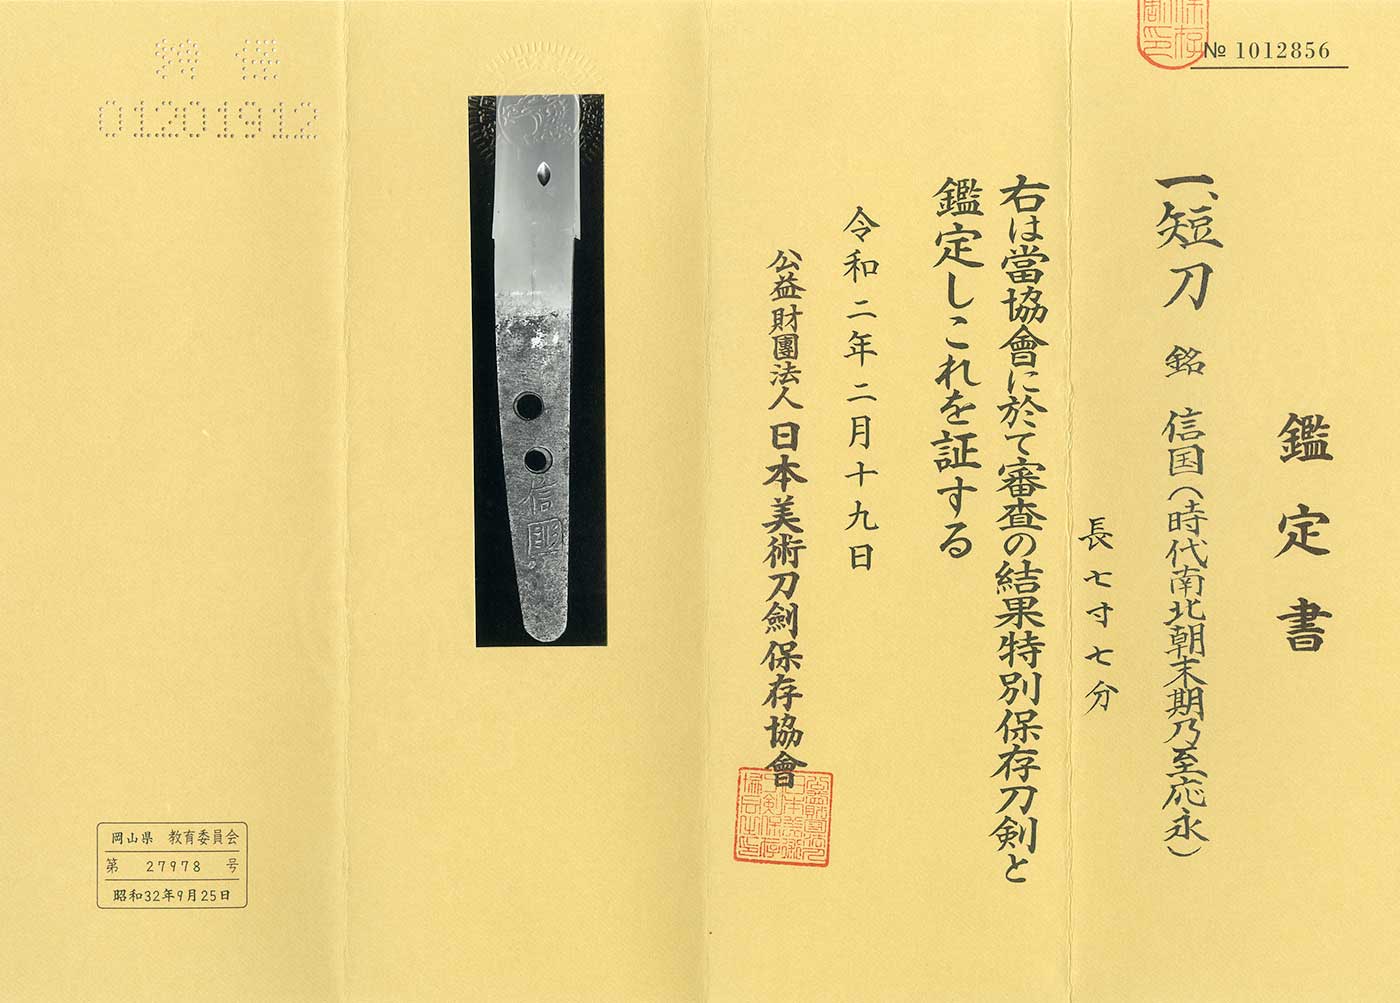 № 1012856
鑑定書
一、短刀 銘 信国(時代南北朝末期乃至応永)
長七寸七分
右は當協會に於て審査の結果特別保存刀剣と
鑑定しこれを証する
令和二年二月十九日
公益財團法人日本美術刀劍保存協會
信國
特保
01201912
岡山県 教育委員会
第 27978 号
昭和32年9月25日